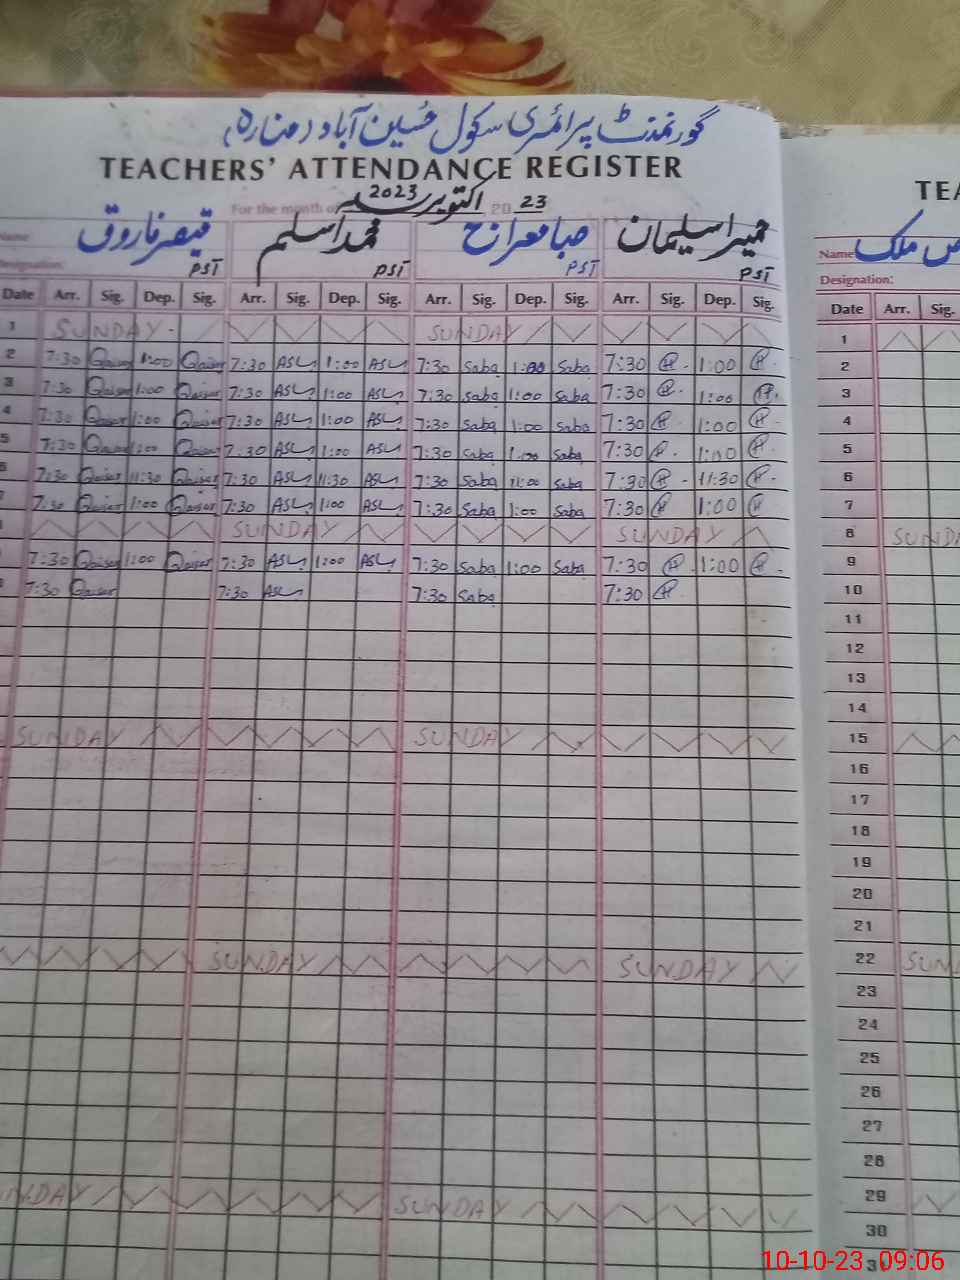 گورنمنٹ پرائمری سکول حسین آباد (منارہ)
TEACHERS' ATTENDANCE REGISTER
TEA
For the month of اکتوبر 2023 20 23
Name: قیصر فاروق محمد اسلم صبا معراج حمیرا سلیمان
Name ملک
Designation: PST PST PST PST
Designation:
Date Arr. Sig. Dep. Sig. Arr. Sig. Dep. Sig. Arr. Sig. Dep. Sig. Arr. Sig. Dep. Sig.
Date Arr. Sig.
1 SUNDAY SUNDAY 1
2 7:30 Qaiser 1:00 Qaiser 7:30 ASL 1:00 ASL 7:30 Saba 1:00 Saba 7:30 H 1:00 H 2
3 7:30 Qaiser 1:00 Qaiser 7:30 ASL 1:00 ASL 7:30 Saba 1:00 Saba 7:30 H 1:00 H 3
4 7:30 Qaiser 1:00 Qaiser 7:30 ASL 1:00 ASL 7:30 Saba 1:00 Saba 7:30 H 1:00 H 4
5 7:30 Qaiser 1:00 Qaiser 7:30 ASL 1:00 ASL 7:30 Saba 1:00 Saba 7:30 H 1:00 H 5
6 7:30 Qaiser 11:30 Qaiser 7:30 ASL 11:30 ASL 7:30 Saba 11:00 Saba 7:30 H 11:30 H 6
7:30 Qaiser 1:00 Qaiser 7:30 ASL 1:00 ASL 7:30 Saba 1:00 Saba 7:30 H 1:00 H 7
SUNDAY SUNDAY 8 SUNDA
7:30 Qaiser 1:00 Qaiser 7:30 ASL 1:00 ASL 7:30 Saba 1:00 Saba 7:30 H 1:00 H 9
7:30 Qaiser 7:30 ASL 7:30 Saba 7:30 H 10
11
12
13
14
SUNDAY SUNDAY 15
16
17
18
19
20
21
SUNDAY SUNDAY 22 SUN
23
24
25
26
27
28
UNDAY SUNDAY 29
30
31
10-10-23 09:06